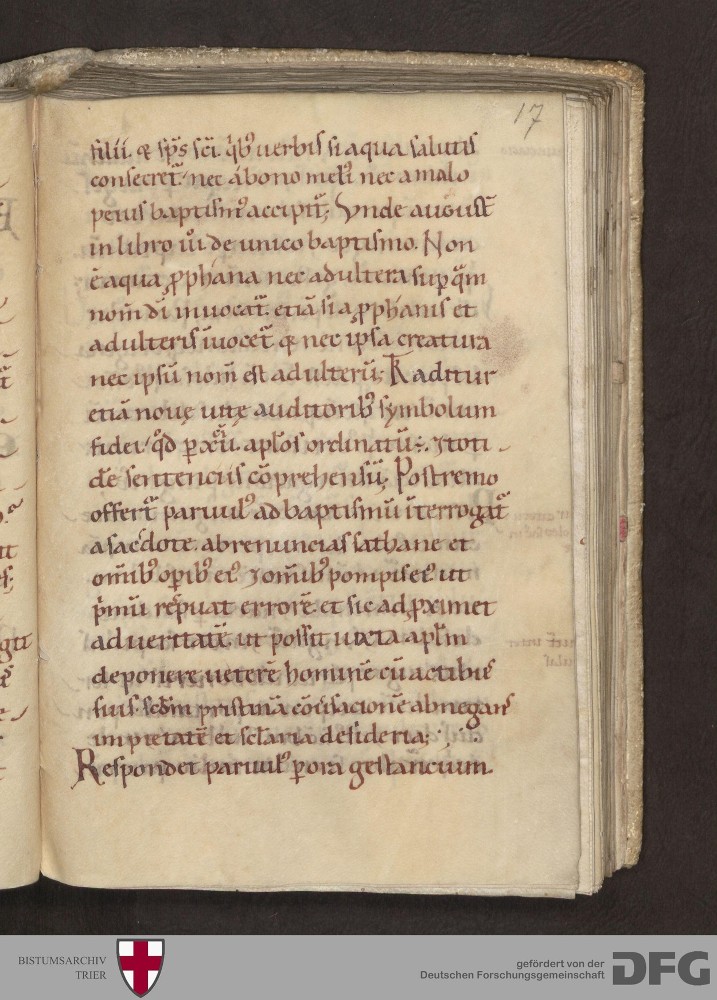 17
filii. & sp̄s sc̄i. q̇bꝰ uerbis si aqua salutis
consecret᷑. nec a bono meli᷑ nec a malo
peius baptism᷑ accipit᷑; Vnde august᷑
in libro iii de unico baptismo. Non
ē aqua ꝓphana nec adultera sup̱ q̄m
nom̄ dī inuocat᷑. etiā si a ꝓphanis et
adulteris īuocet᷑ q̇ nec ipsa creatura
nec ipsū nom̄ est adulterū; Traditur
etiā nouę uitę auditoribꝰ symbolum
fidei. q̇d p̱ xii. apl̄os ordinatū. ⁊ toti
dē sentenciis cōprehensū; Postremo
offert᷑ paruulꝰ ad baptismū īterrogat᷑
a sac̄dote. abrenuncias sathane et
om̄ibꝰ op̱ibꝰ eiꝰ ⁊ om̄ibꝰ pompis eiꝰ ut
p̓mū resp̱uat errorē. et sic ad ꝓximet
ad ueritatē. ut possit iuxta apl̄m
deponere ueterē hominē cū actibus
suis. scd̄m pristinā cōu̓sacionē abnegans
impietatē et sclaria desideria;
Respondet paruulꝰ p̱ ora gestancium.
BISTUMSARCHIV
TRIER
gefördert von der
Deutschen Forschungsgemeinschaft
DFG